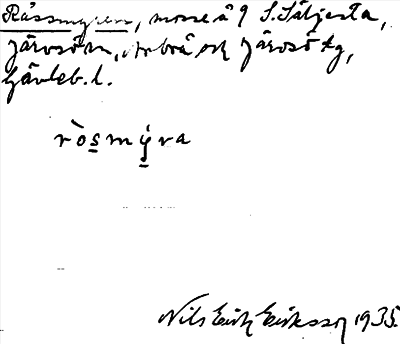 Råssmyren, mosse å 9 S. Säljesta,
Järvsö sn, Arbrå och Järvsö tg,
Gävleb. l.
ròsmýra
Nils Erik Eriksson 1935.